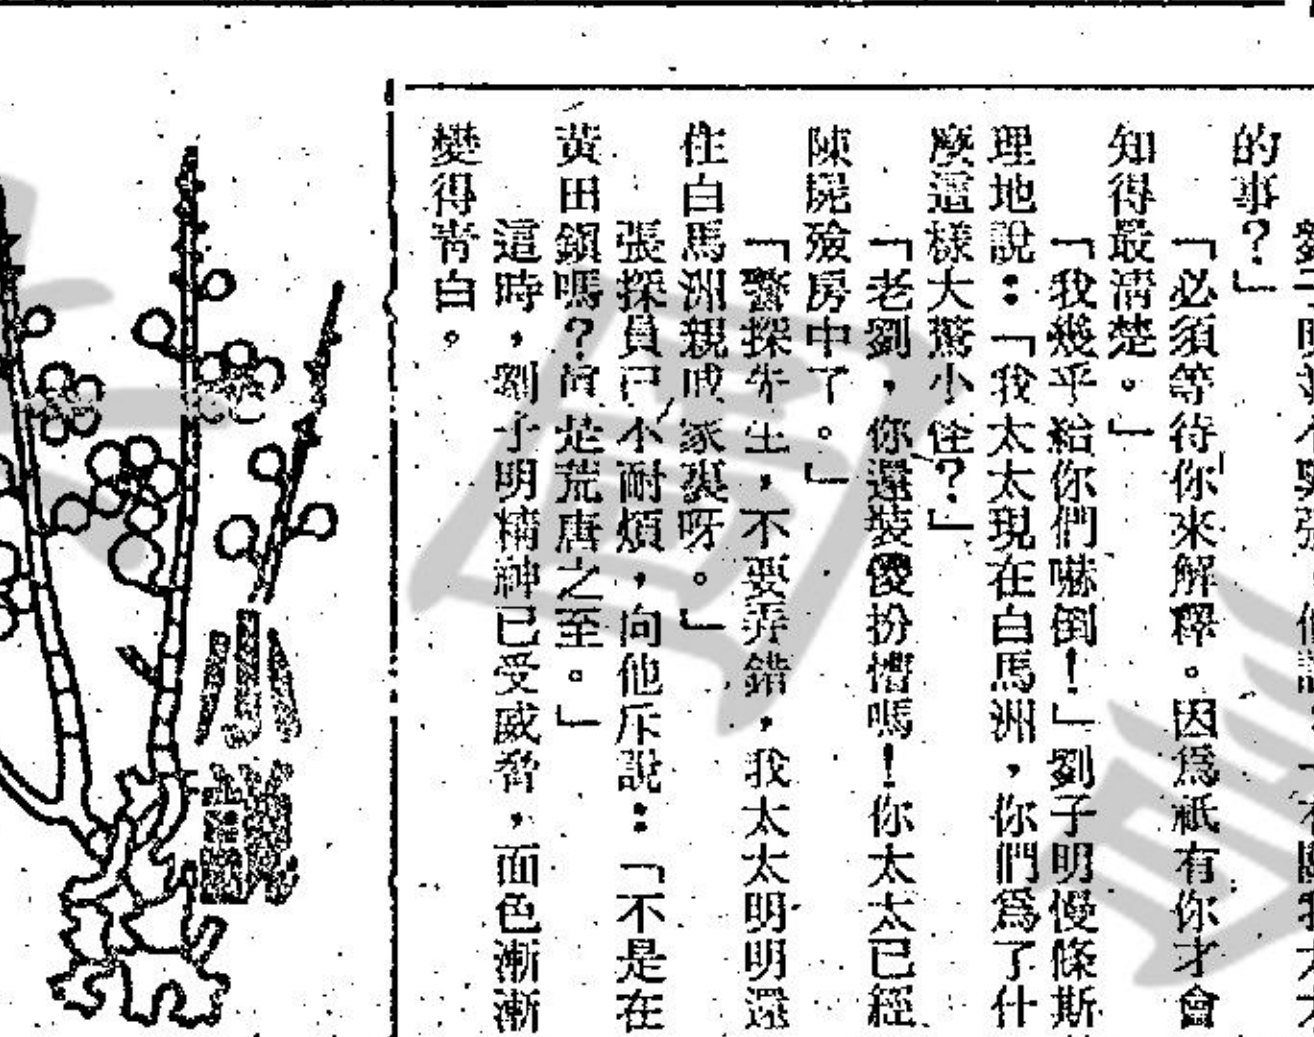 劉子明並不緊張，他說：「有關我太太
的事？」
「必須等待你來解釋。因爲祇有你才會
知得最清楚。」
「我幾乎給你們嚇倒！」劉子明慢條斯
理地說：「我太太現在白馬洲，你們爲了什
麼這樣大驚小怪？」
「老劉，你還裝傻扮懵嗎！你太太已經
陳屍殮房中了。」
「警探先生，不要弄錯，我太太明明還
住白馬洲親戚家裏呀。」
張探員已不耐煩，向他斥說：「不是在
黃田鎭嗎？眞是荒唐之至。」
這時，劉子明精神已受威脅，面色漸漸
變得靑白。